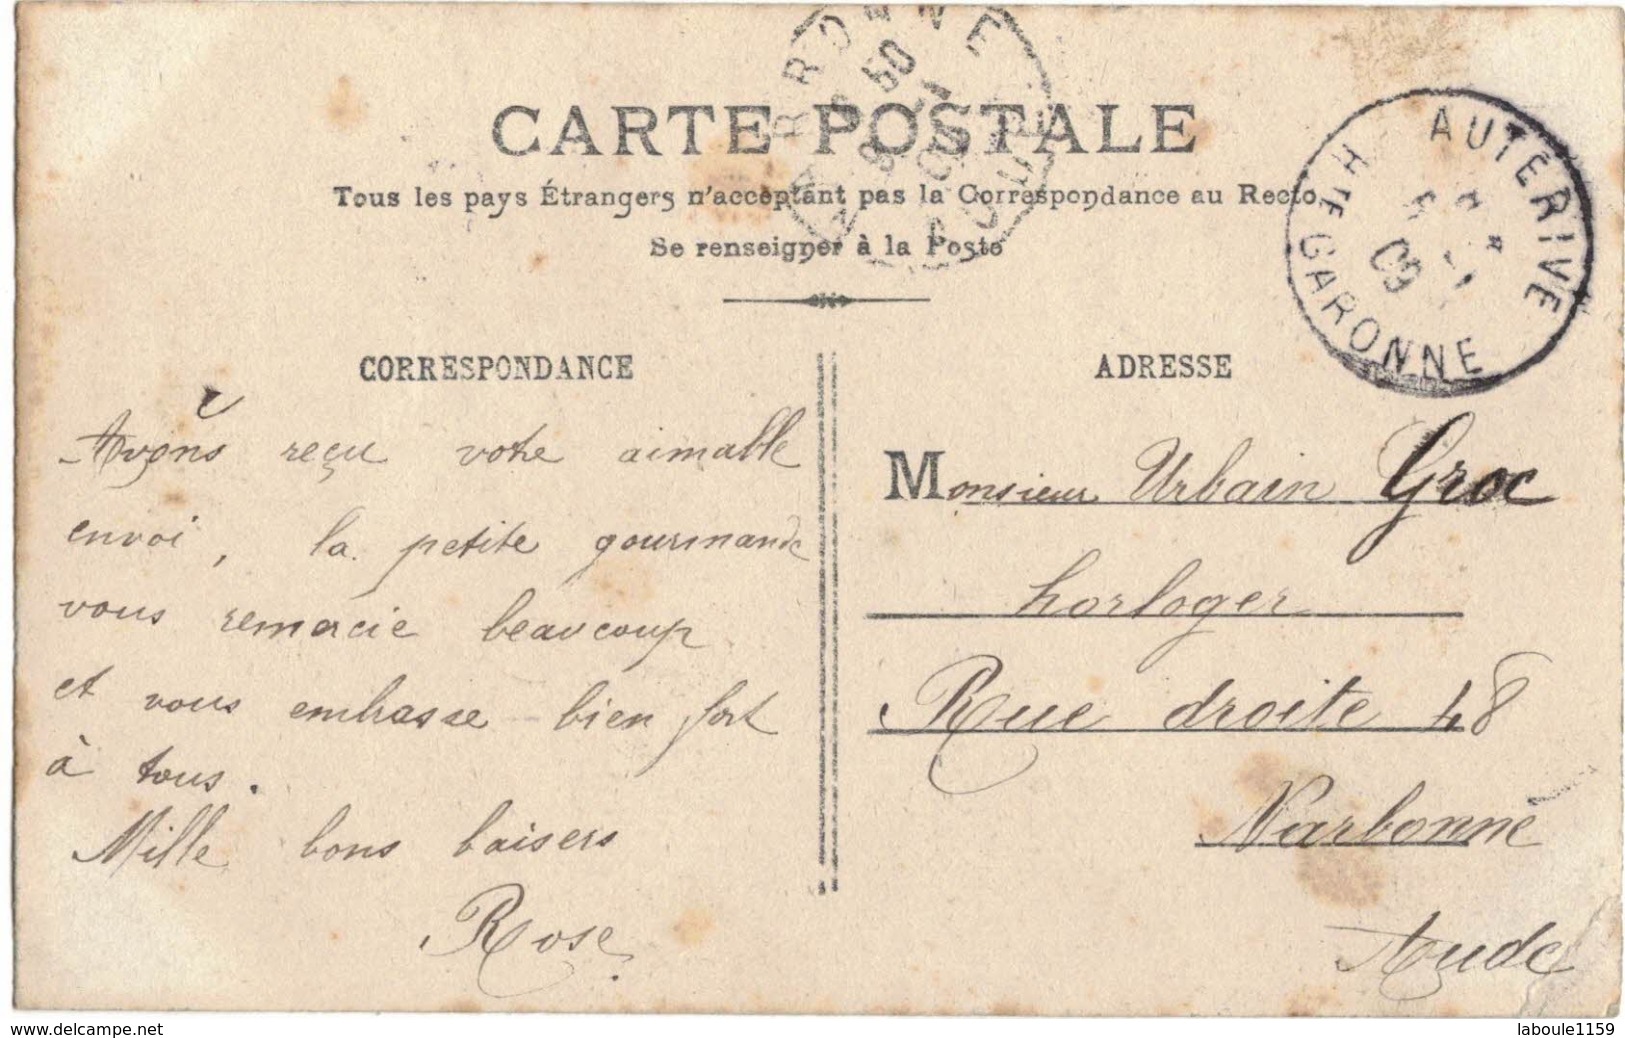 CARTE POSTALE
Tous les pays Étrangers n'acceptant pas la Correspondance au Recto,
Se renseigner à la Poste
NARBONNE
AUDE
AUTERIVE
HTE GARONNE
09
CORRESPONDANCE
Avons reçu votre aimable
envoi, la petite gourmande
vous remercie beaucoup
et vous embrasse bien fort
à tous.
Mille bons baisers
Rose.
ADRESSE
Monsieur Urbain Groc
horloger
Rue droite 48
Narbonne
Aude
delcampe.net
laboule1159